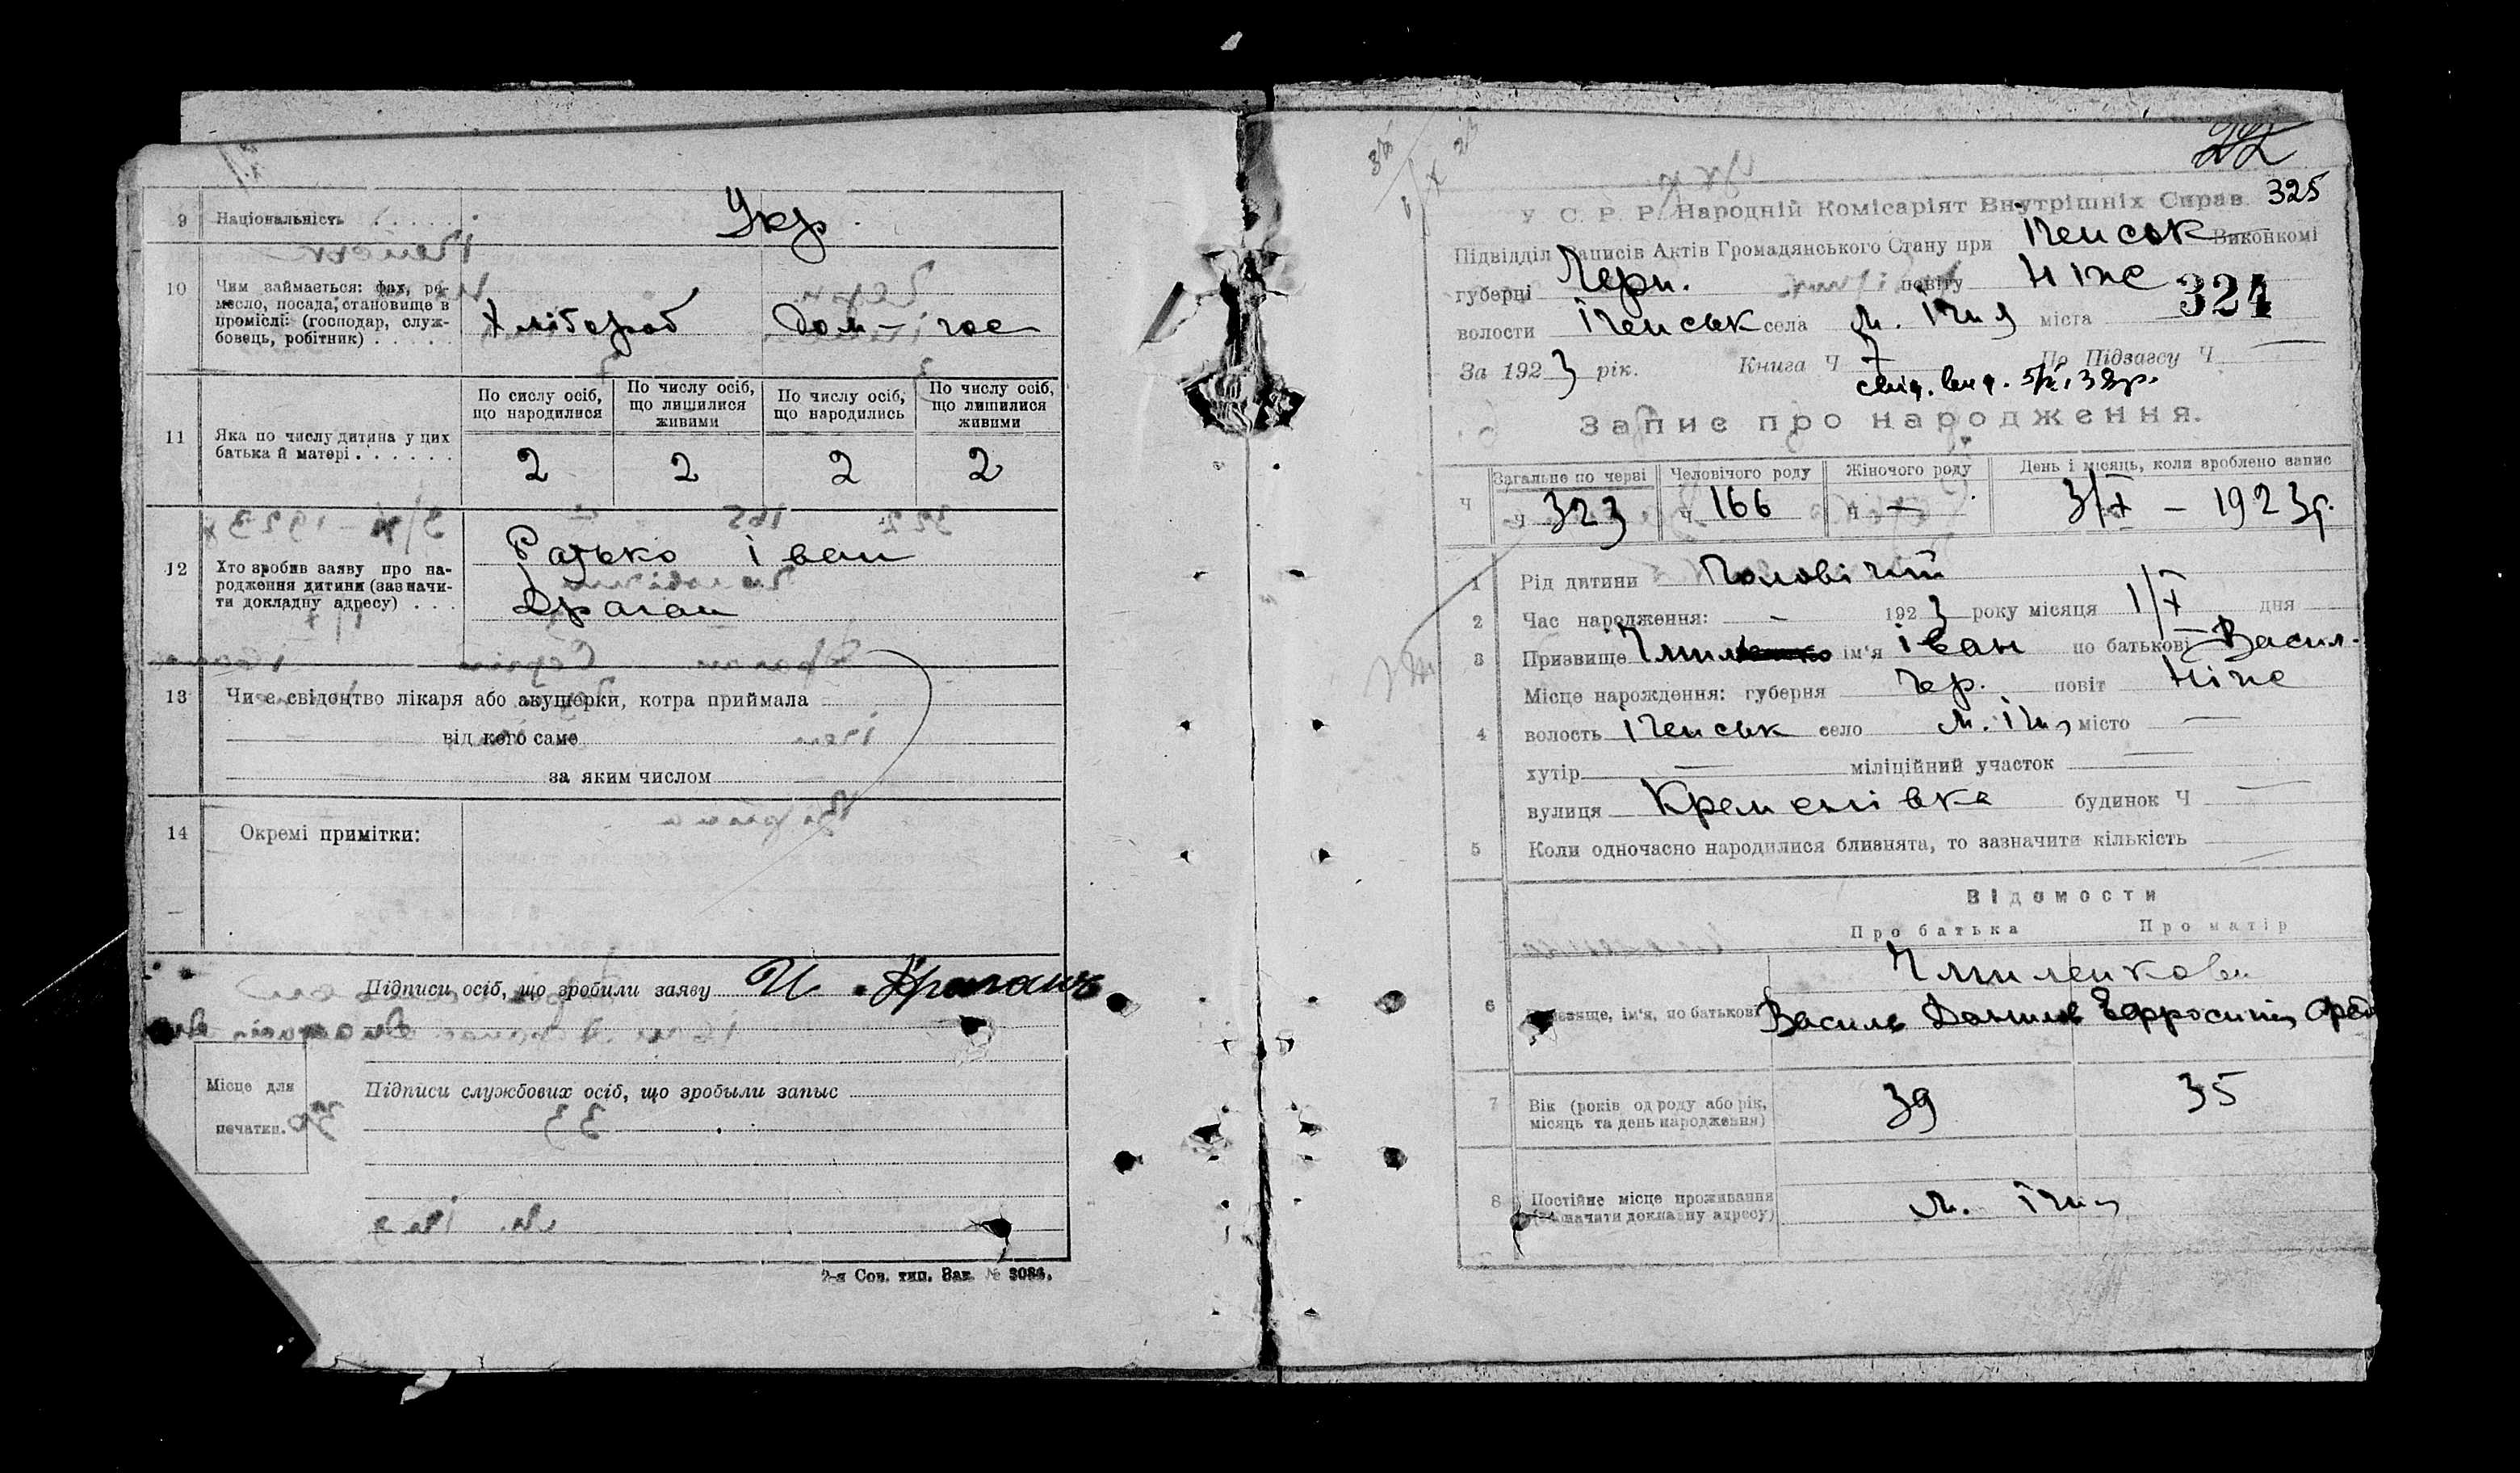 9 Національність Укр.
10 Чим займається: фах, ре-
месло, посада, становище в
проміслі: (господар, служ-
бовець, робітник)
Хлібороб Дом-гос
11 Яка по числу дитина у цих
батька й матері
По сислу осіб, що народилися
По числу осіб, що лишилися живими
По числу осіб, що народились
По числу осіб, що лишилися живими
2 2 2 2
12 Хто зробив заяву про на-
родження дитини (зазначи-
ти докладну адресу)
Іван
Драган
13 Чи є свідоцтво лікаря або акушерки, котра приймала
від кого саме
за яким числом
14 Окремі примітки:
Підписи осіб, що зробили заяву И. Драганъ
Місце для
печатки.
Підписи службових осіб, що зробыли запыс
2-я Сов. тип. Зак. № 3084.
325
У. С. Р. Р. Народній Комісаріят Внутрішніх Справ.
Підвідділ Записів Актів Громадянського Стану при Іченськ Виконкомі
губерні Черн. повіту Ніже
324
волости Іченськ села м. Ічня міста —
За 1923 рік. Книга Ч 7 По Підзагсу Ч —
Запис про народження.
Загальне по черві Человічого роду Жіночого роду День і місяць, коли зроблено запис
Ч Ч 323 Ч 166 Ч — 3/X — 1923р.
1 Рід дитини Чоловічий
2 Час народження: — 1923 року місяця 1/X дня
3 Призвище ім'я Іван по батькові Васил.
Місце народження: губерня Чер. повіт Ніже
4 волость Іченськ село м. Ічня місто —
хутір — міліційний участок —
вулиця будинок Ч —
5 Коли одночасно народилися близнята, то зазначити кількість —
Відомости
Про батька Про матір
6 Призвище, ім'я, по батькові
Василь Данилов Ефросинія
7 Вік (років од роду або рік,
місяць та день народження)
39 35
8 Постійне місце проживання
(зазначити докладну адресу)
м. Ічня